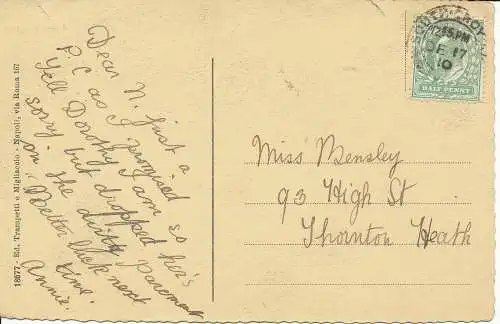 Dear N. just a
P.C as I promised
Tell Dorothy I am so
sorry but dropped her's
on the dirty Pavement
Better luck next
time.
Annie.
18577 - Ed. Trampetti e Migliaccio - Napoli, via Roma 167
SOUTH CROY
12.15 PM
DE 17
10
HALF PENNY
Miss Mensley
93 High St
Thornton Heath